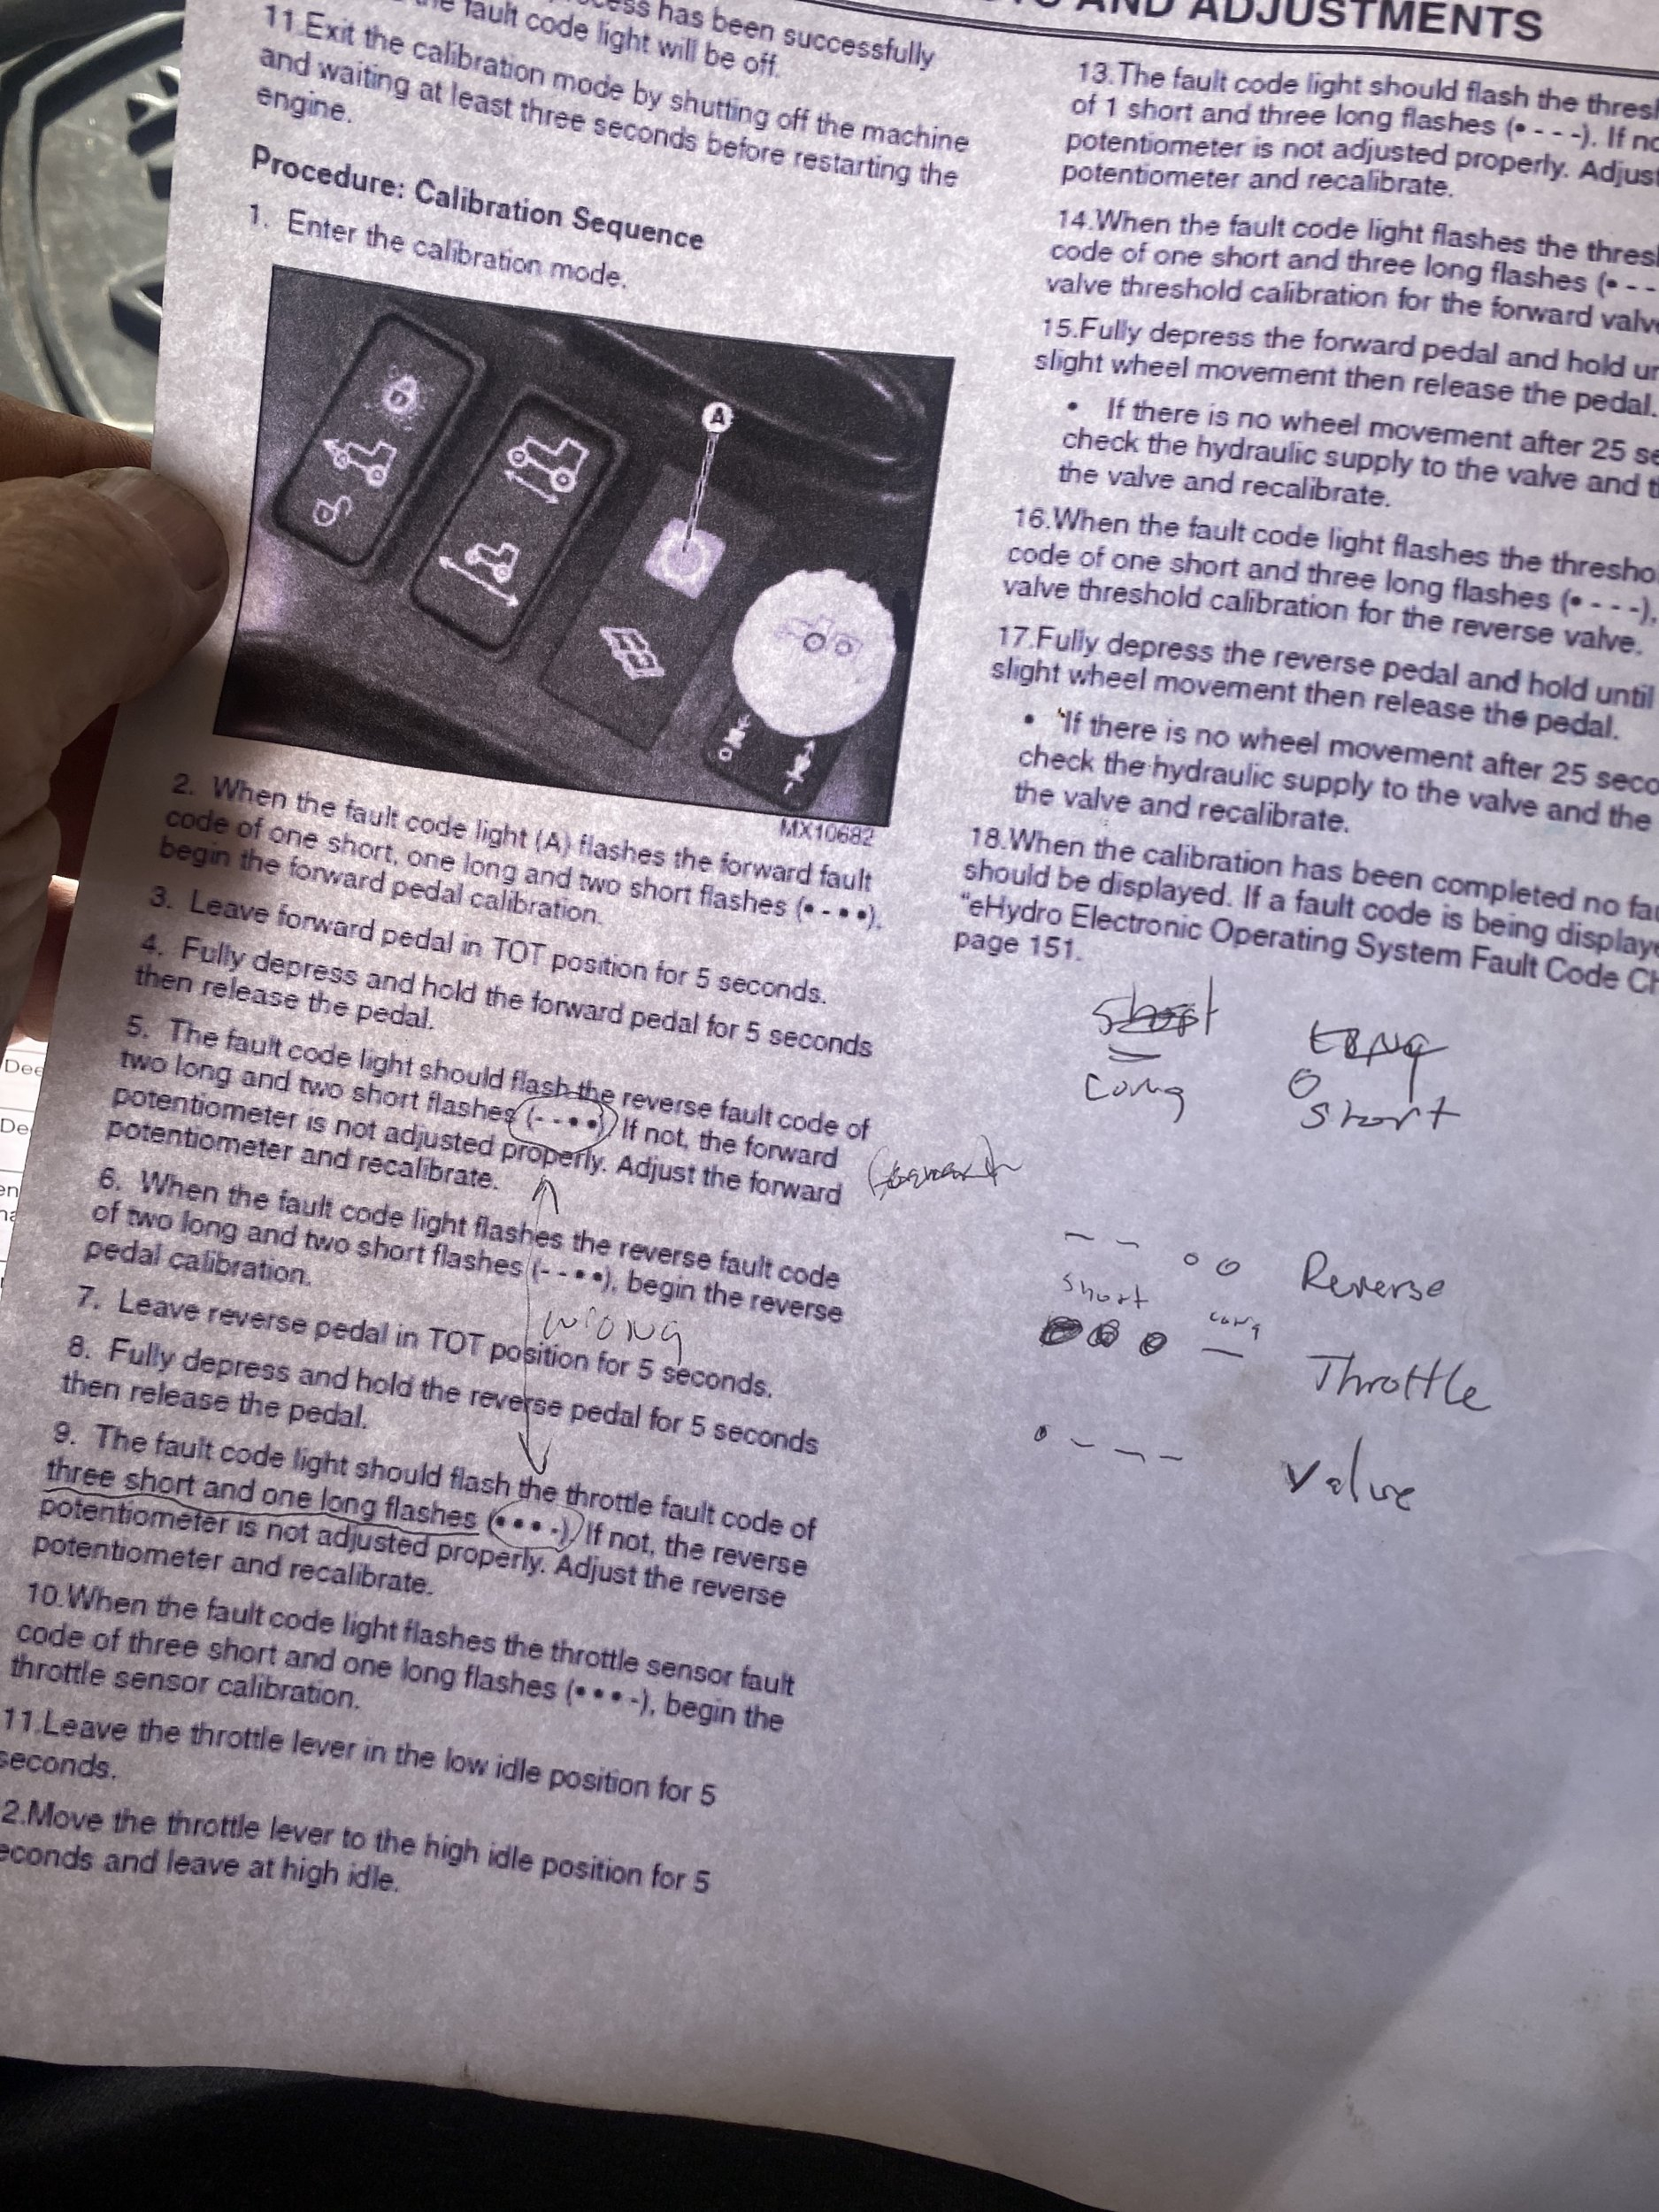 AND ADJUSTMENTS
has been successfully
the fault code light will be off.
11.Exit the calibration mode by shutting off the machine
and waiting at least three seconds before restarting the
engine.
Procedure: Calibration Sequence
1. Enter the calibration mode.
A
MX10682
2. When the fault code light (A) flashes the forward fault
code of one short, one long and two short flashes (• - • •),
begin the forward pedal calibration.
3. Leave forward pedal in TOT position for 5 seconds.
4. Fully depress and hold the forward pedal for 5 seconds
then release the pedal.
5. The fault code light should flash the reverse fault code of
two long and two short flashes (- - • •) If not, the forward
potentiometer is not adjusted properly. Adjust the forward
potentiometer and recalibrate.
6. When the fault code light flashes the reverse fault code
of two long and two short flashes (- - • •), begin the reverse
pedal calibration.
wrong
7. Leave reverse pedal in TOT position for 5 seconds.
8. Fully depress and hold the reverse pedal for 5 seconds
then release the pedal.
9. The fault code light should flash the throttle fault code of
three short and one long flashes (• • • -). If not, the reverse
potentiometer is not adjusted properly. Adjust the reverse
potentiometer and recalibrate.
10.When the fault code light flashes the throttle sensor fault
code of three short and one long flashes (• • • -), begin the
throttle sensor calibration.
11.Leave the throttle lever in the low idle position for 5
seconds.
2.Move the throttle lever to the high idle position for 5
econds and leave at high idle.
13.The fault code light should flash the thresh
of 1 short and three long flashes (• - - -). If no
potentiometer is not adjusted properly. Adjust
potentiometer and recalibrate.
14.When the fault code light flashes the thresh
code of one short and three long flashes (• - -
valve threshold calibration for the forward valve
15.Fully depress the forward pedal and hold un
slight wheel movement then release the pedal.
• If there is no wheel movement after 25 se
check the hydraulic supply to the valve and t
the valve and recalibrate.
16.When the fault code light flashes the thresho
code of one short and three long flashes (• - - -),
valve threshold calibration for the reverse valve.
17.Fully depress the reverse pedal and hold until
slight wheel movement then release the pedal.
• If there is no wheel movement after 25 seco
check the hydraulic supply to the valve and the
the valve and recalibrate.
18.When the calibration has been completed no fau
should be displayed. If a fault code is being displaye
"eHydro Electronic Operating System Fault Code Ch
page 151.
short Long
Long Short
- - o o Reverse
short long
• • • - Throttle
• - - - Valve
Dee
De